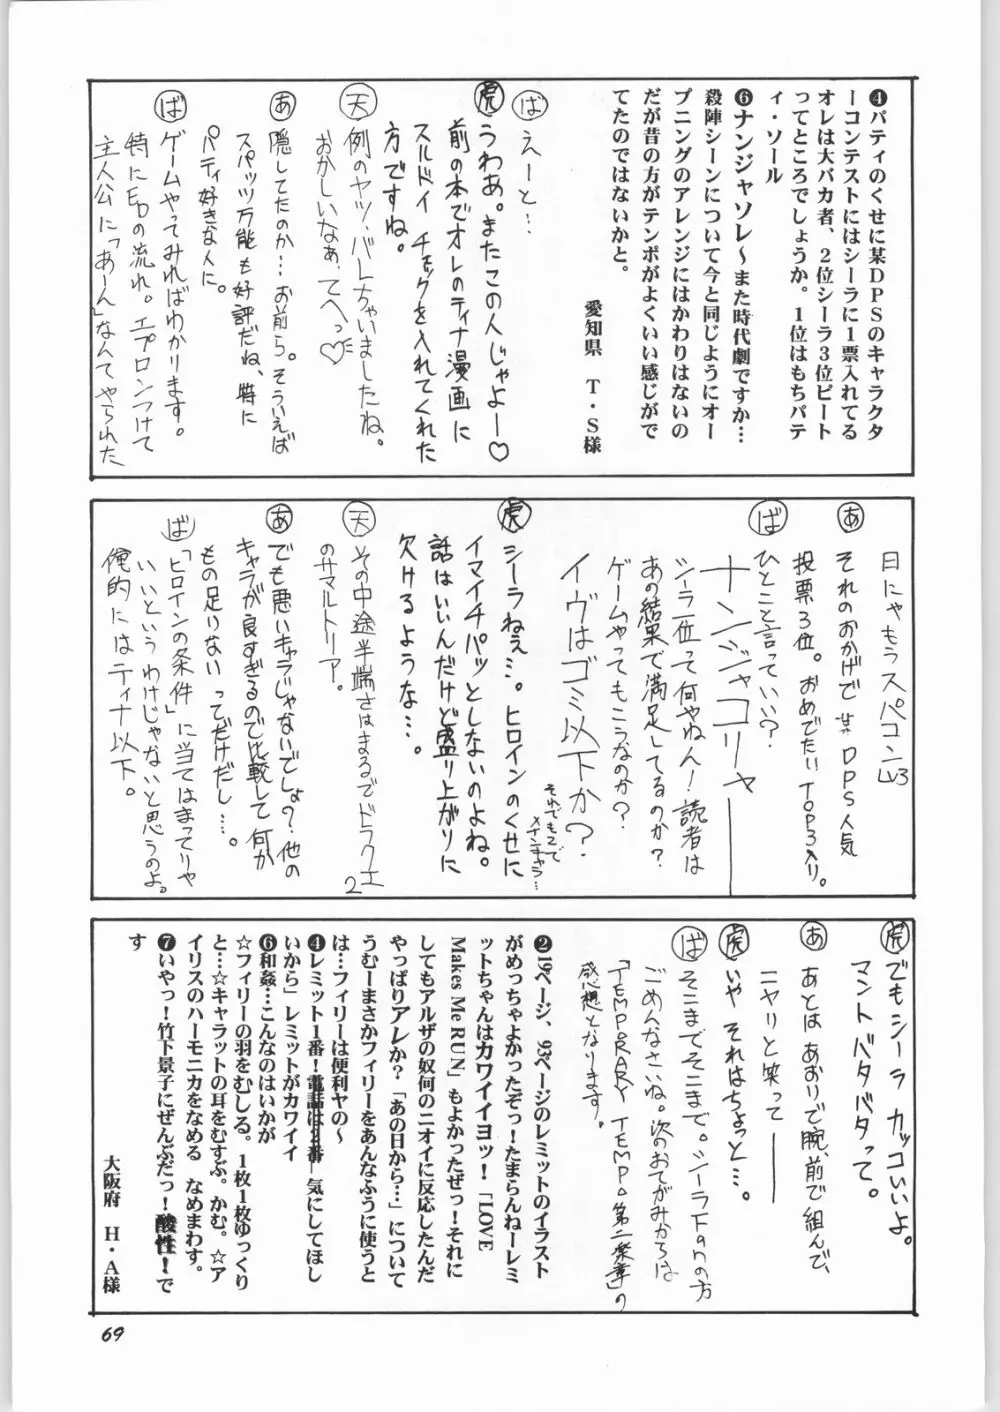 ❹パティのくせに某ＤＰＳのキャラクタ
ーコンテストにはシーラに１票入れてる
オレは大バカ者、２位シーラ３位ピート
ってところでしょうか。１位はもちパテ
ィ・ソール
❻ナンジャソレ～また時代劇ですか…
殺陣シーンについて今と同じようにオー
プニングのアレンジにはかわりはないの
だが昔の方がテンポがよくいい感じがで
てたのではないかと。
愛知県　Ｔ・Ｓ様
ば えーと…
虎 うわあ。またこの人じゃよー♡
前の本でオレのティナ漫画に
スルドイ チェックを入れてくれた
方ですね。
天 例のヤツ・バレちゃいましたね。
おかしいなぁ、てへっ♡
あ 隠してたのか…お前ら。そういえば
スパッツ万能も好評だね、特に
パティ好きな人に。
ば ゲームやってみればわかります。
特にEDの流れ。エプロンつけて
主人公に「あーん」なんてやられた
日にゃもうスパコンLV3
あ それのおかげで 某DPS人気
投票3位。おめでたいTOP3入り。
ば ひとこと言っていい？
ナンジャコリャー
シーラ一位って何やねん！読者は
あの結果で満足してるのか？
ゲームやってもこうなのか？
イヴはゴミ以下か？
それでもってメインキャラ…
虎 シーラねぇ…。ヒロインのくせに
イマイチパッとしないのよね。
話はいいんだけど盛り上がりに
欠けるような…。
天 その中途半端さはまるでドラクエ2
のサマルトリア。
あ でも悪いキャラじゃないでしょ？他の
キャラが良すぎるので比較して何か
もの足りないってだけだし…。
ば 「ヒロインの条件」に当てはまってりゃ
いいというわけじゃないと思うのよ。
俺的にはティナ以下。
虎 でもシーラ カッコいいよ。
マントバタバタって。
あ あとは あおりで腕、前で組んで、
ニヤリと笑って――
虎 いや それはちょっと…。
ば そこまでそこまで。シーラFanの方
ごめんなさいね。次のおてがみからは
「TEMPORARY TEMPO第二楽章」の
感想となります。
❷19ページ、93ページのレミットのイラスト
がめっちゃよかったぞっ！たまらんねーレミ
ットちゃんはカワイイヨッ！「LOVE
Makes Me RUN」もよかったぜっ！それに
してもアルザの奴何のニオイに反応したんだ
やっぱりアレか？「あの日から…」について
うむーまさかフィリーをあんなふうに使うと
は…フィリーは便利ヤの～
❹レミット１番！電話は２番―気にしてほし
いから」レミットがカワイイ
❻和姦…こんなのはいかが
☆フィリーの羽をむしる。１枚１枚ゆっくり
と…☆キャラットの耳をむすぶ。かむ。☆ア
イリスのハーモニカをなめる　なめまわす。
❼いやっ！竹下景子にぜんぶだっ！酸性！で
す
大阪府　Ｈ・Ａ様
69